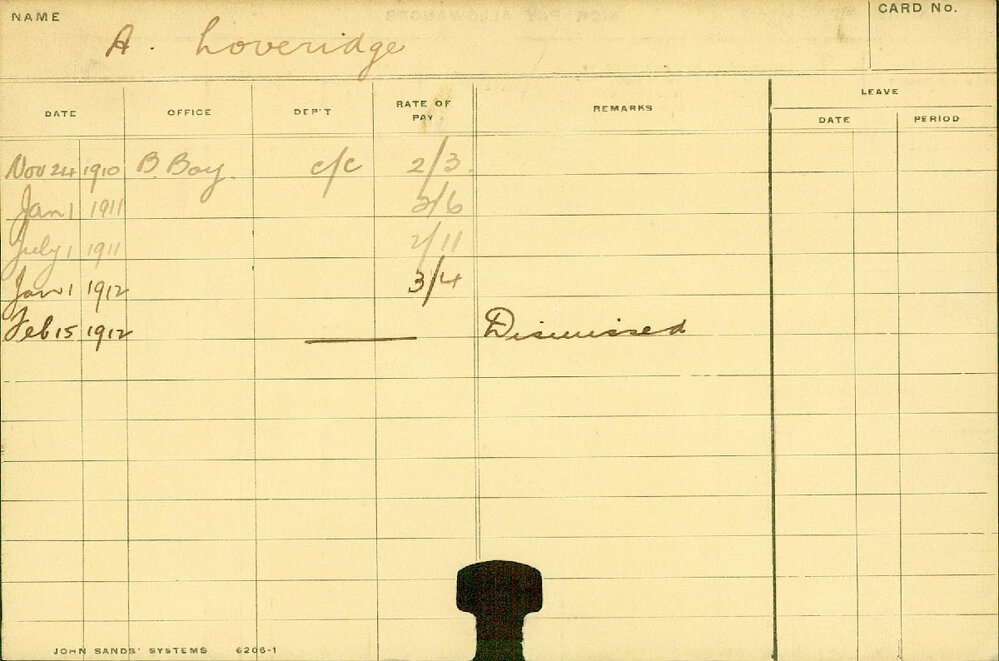 NAME A. Loveridge CARD No.
LEAVE
DATE OFFICE DEP'T RATE OF PAY REMARKS DATE PERIOD
Nov 24 1910 B. Boy. c/c 2/3.
Jan 1 1911 2/6
July 1 1911 2/11
Jan 1 1912 3/4
Feb 15 1912 — Dismissed
JOHN SANDS' SYSTEMS 6206-1